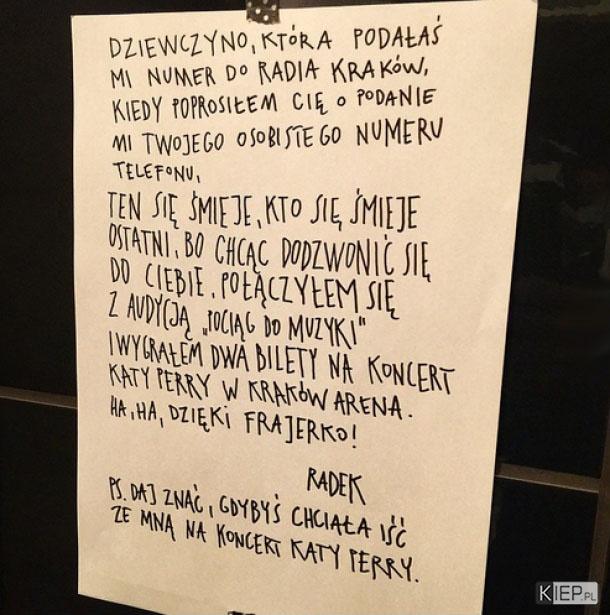 DZIEWCZYNO, KTÓRA PODAŁAŚ
MI NUMER DO RADIA KRAKÓW,
KIEDY POPROSIŁEM CIĘ O PODANIE
MI TWOJEGO OSOBISTEGO NUMERU
TELEFONU,
TEN SIĘ ŚMIEJE, KTO SIĘ ŚMIEJE
OSTATNI, BO CHCĄC DODZWONIĆ SIĘ
DO CIEBIE, POŁĄCZYŁEM SIĘ
Z AUDYCJĄ „POCIĄG DO MUZYKI"
I WYGRAŁEM DWA BILETY NA KONCERT
KATY PERRY W KRAKÓW ARENA.
HA, HA, DZIĘKI FRAJERKO!
RADEK
PS. DAJ ZNAĆ, GDYBYŚ CHCIAŁA IŚĆ
ZE MNĄ NA KONCERT KATY PERRY.
KIEP.PL